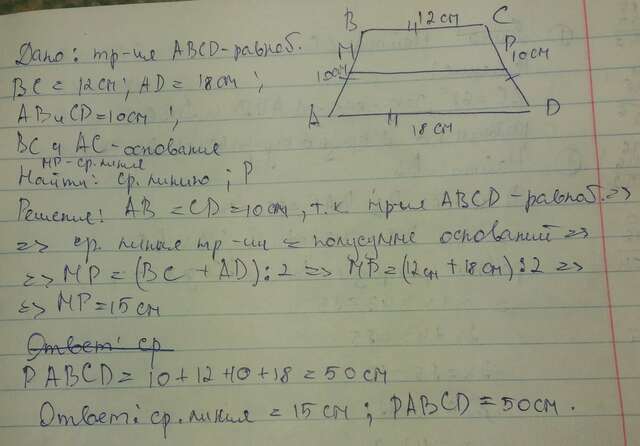 Дано: тр-ция ABCD-равноб.
BC = 12см; AD = 18см;
AB и CD = 10см;
BC и AC - основание
MP - ср. линия
Найти: ср. линию; P
Решение: AB = CD = 10см, т.к. тр-ция ABCD - равноб. =>
=> ср. линия тр-ции = полусумме оснований =>
=> MP = (BC + AD) : 2 => MP = (12см + 18см) : 2 =>
=> MP = 15 см
Ответ: ср
PABCD = 10 + 12 + 10 + 18 = 50 см
Ответ: ср. линия = 15 см; PABCD = 50 см.
B 12 см C
M P
10см 10см
A D
18 см